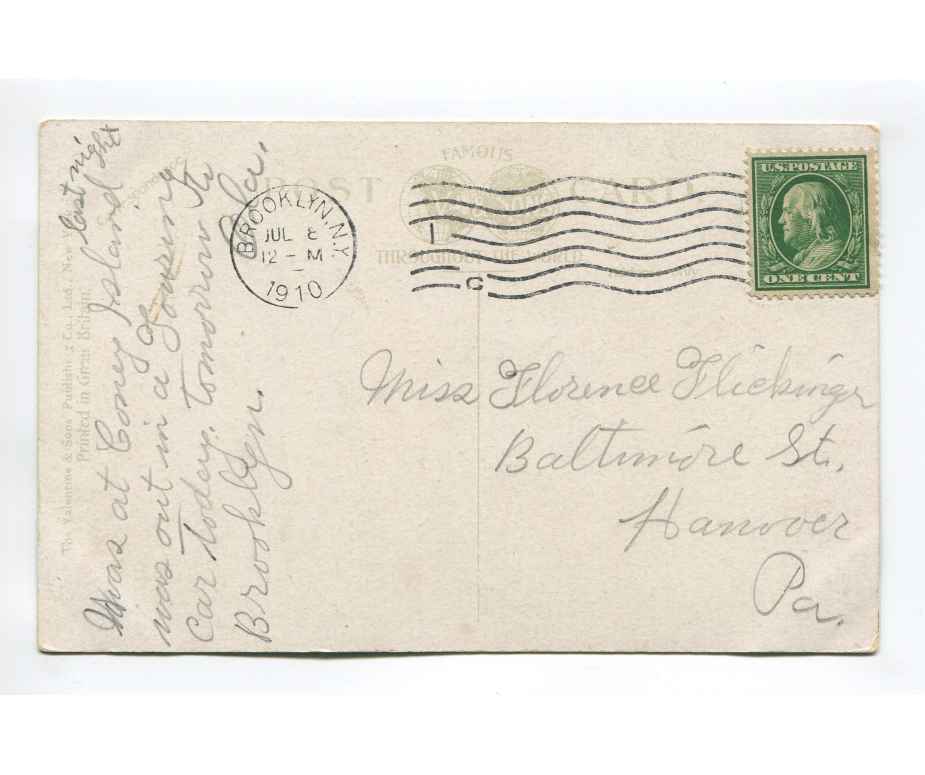 FAMOUS
POST CARD
THROUGHOUT THE WORLD
BROOKLYN, N.Y.
JUL 8
12 - M
1910
1
C
U.S. POSTAGE
ONE CENT
The Valentine & Sons Publishing Co., Ltd. New
Printed in Great Britain
Was at Coney Island last night
was out in a Touring
car Today. tomorrow to
Brooklyn.
Miss Florence Flickinger
Baltimore St.
Hanover
Pa.